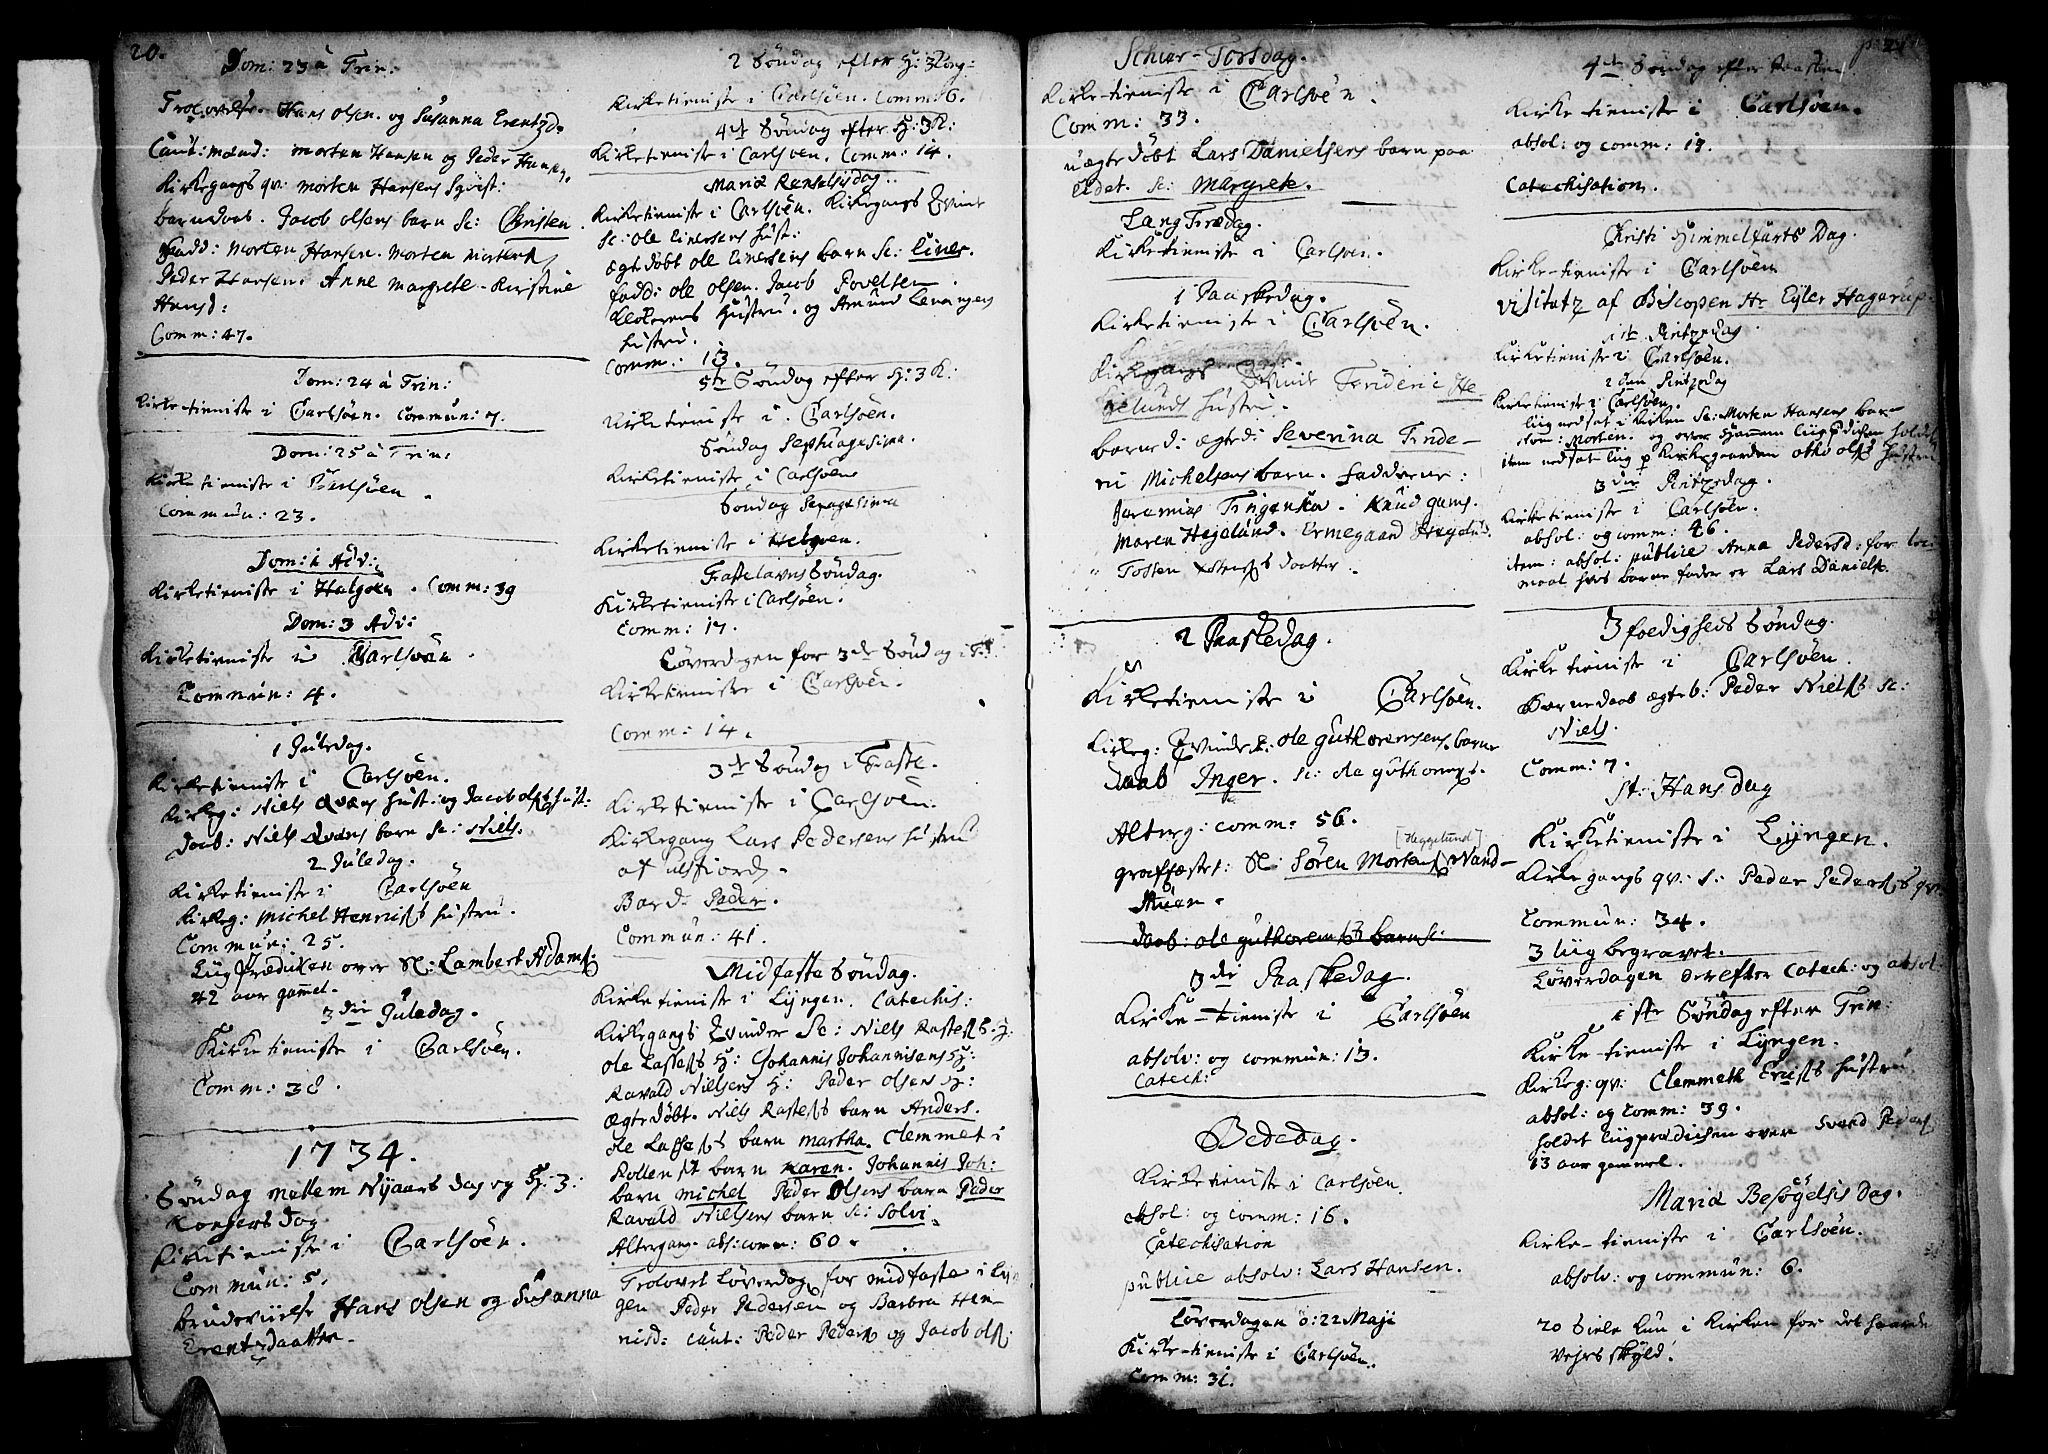 20.
Dom: 23 à Trin:
Trolovelse. Hans Olsen. og Susanna Erentzd.
Caut: mænd: Morten Hansen og Peder Hansen.
Kirkegangs qv: Morten Hansens
barnedaab. Jacob Olsens barn Sc: Christen.
fadd: Morten Hansen. Morten
Peder Hansen. Anne Margrete. Kirstine
Hansd:
Comm: 47.
Dom: 24 à Trin:
Kirketieniste i Carlsöen. Commun: 7.
Dom: 25 à Trin:
Kirketieniste i Carlsöen.
Commun: 23.
Dom: 1 Adv:
Kirketieniste i Helgöen. Comm: 39
Dom: 3 Adv:
Kirketieniste i Carlsöen
Commun: 4.
1 Juledag.
Kirketieniste i Carlsöen.
Kirkeg: Niels Qvæns hust: og Jacob Ols: hust:
Daab: Niels Qvæns barn Sc: Niels.
2 Juledag.
Kirketieniste i Carlsöen
Kirkeg: Michel Henrichs hustru.
Commun: 25.
Liigprædiken over Sl: Lambert Adams:
42 aar gammel.
3die Juledag.
Kirketieniste i Carlsöen.
Comm: 38.
1734.
Söndag mellem Nyaars dag og H: 3:
Kongers dag
Kirketieniste i Carlsöen.
Commun: 5.
Brudevielse Hans Olsen og Susanna
Erentzdaatter.
2 Söndag efter H: 3 Kong:
Kirketieniste i Carlsöen. Comm: 6.
4de Söndag efter H: 3 K:
Kirketieniste i Carlsoen. Comm: 14.
Mariæ Renselsisdag.
Kirketieniste i Carlsöen. Kirkegangs Qvinde
Sc: Ole Einersens hust:
Ægte döbt Ole Einersens barn Sc: Einer.
fadd: Ole Olsen. Jacob Povelsen.
Klokerens Hustru. og Amund
hustru.
Comm: 13.
5te Söndag efter H: 3 K:
Kirketieniste i Carlsöen.
Söndag Septuagesima.
Kirketieniste i Carlsöen
Söndag Sexagesima
Kirketieniste i Helgöen.
Fastelavns Söndag.
Kirketieniste i Carlsöen.
Comm: 17.
Löverdagen for 3de Söndag i F:
Kirketieniste i Carlsöen.
Comm: 14.
3de Söndag i Faste.
Kirketieniste i Carlsöen.
Kirkegang Lars Pedersens hustru
af Ulsfiord.
Barn: Peder.
Commun: 41.
Midfaste Söndag.
Kirketieniste i Lyngen. Catechis:
Kirkegangs Qvinder Sc: Niels Rastes: H:
Ole Lasses H: Johannis Johannisens H:
Ravald Nielsens H: Peder Olsens H:
Ægte döbt. Niels Rastes barn Anders.
Ole Lasses barn Martha. Clemmet i
barn Karen. Johannis Joh:
barn Michel Peder Olsens barn Peder
Ravald Nielsens barn Sc: Solvi.
Altergang. abs: comm: 60.
Trolovet Löverdag for midfaste i Lyn
gen Peder Pedersen og Barbra Hen-
risd: caut: Peder Peders og Jacob Ols:
Schier-Torsdag.
Kirke-tieniste i Carlsöen.
Comm: 33.
uægte döbt Lars Danielsens barn paa
Eidet. Sc: Margrete.
Lang Fredag.
Kirketieniste i Carlsöen.
1 Paaskedag.
Kirketieniste i Carlsöen.
Kirkegangs Qvinde Frideric He
gelunds hustru.
barned: ægte: Severina Fride-
ric Michelsens barn. Fadderne:
Jeremias . Knud
Maren Hegelund. Ermegaard Hegelund.
daatter.
2 Paaskedag.
Kirketieniste i Carlsöen.
Kirkeg: Qvinde Sc: Ole Guthormsens. barne
daab Inger. Sc: Ole Guthorms.
Alterg: comm: 56.
[Heggelund]
graffæstet: Sl: Sören Mortens Vand-
daab: Ole Guthorms barn Sc:
3die Paaskedag.
Kirke-tieniste i Carlsöen
absolv: og commun: 13.
Catech:
Bededag.
Kirketieniste i Carlsöen.
absol: og comm: 16.
Catechisation
publice absolv: Lars Hansen.
Löverdagen d: 22 Maji
Kirke-tieniste i Carlsöen.
Comm: 31.
p: 21
4de Söndag efter Paaske
Kirke tieniste i Carlsöen.
absol: og comm: 19.
Catechisation.
Christi Himmelfarts Dag.
Kirke-tieniste i Carlsöen
visitatz af Biscopen Hr Eyler Hagerup.
1te Pintzedag
Kirketieniste i Carlsöen.
2den Pintzedag
Kirketieniste i Carlsöen.
liig nedsat i Kirken Sc: Morten Hansens barn
Morten. og over Hannem Liigprædichen holdet
item nedsat liig p Kirkegaarden Otho Ols hustru
3die Pintzedag.
Kirketieniste i Carlsöen.
absol: og comm: 46.
item: absol: publice Anna Pedersd: for lei:
maal hvis barne fader er Lars Daniels.
3foldigheds Söndag.
Kirke tieniste i Carlsöen.
Barnedaab ægte b: Peder Niels Sc:
Niels.
Comm: 7.
St: Hans dag
Kirketieniste i Lyngen.
Kirkegangs qv: S: Peder Peders qv:
Commun: 34.
3 liig begravet.
Löverdagen derefter Catech: og absol:
1ste Söndag efter Trin:
Kirke-tieniste i Lyngen.
Kirkeg: qv: Clemmeth hustru
absol: og Comm: 39.
holdet liigprædichen over Peders
13 aar gammel.
Mariæ Besögelsis dag.
Kirke-tieniste i Carlsöen.
absolv: og commun: 6.
20 Siele kun i Kirken for det haarde
vejrs skyld.